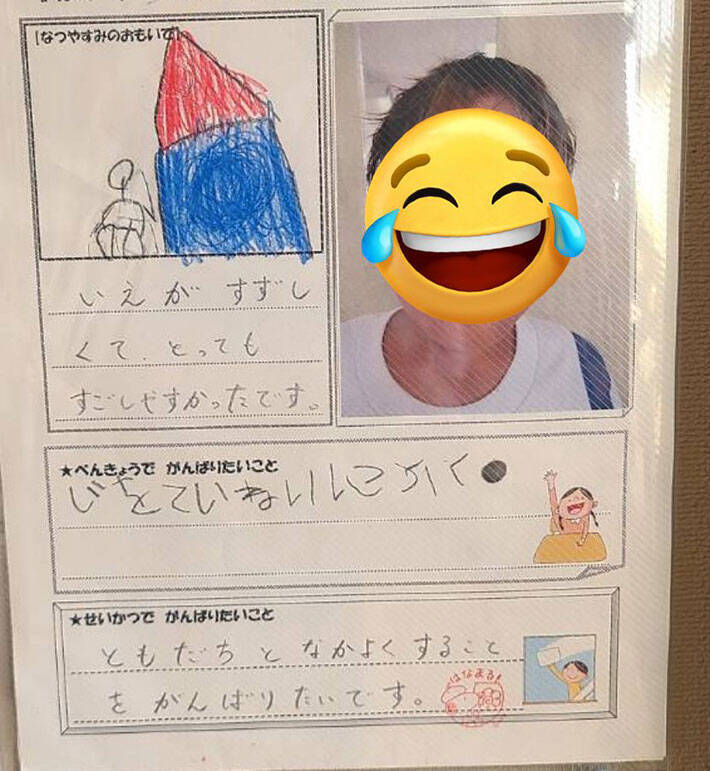 [なつやすみのおもいで]
いえが すずし
くて、とっても
すごしやすかったです。
★べんきょうで がんばりたいこと
じをていねいにかく
★せいかつで がんばりたいこと
ともだちと なかよくすること
を がんばりたいです。
はなまる!